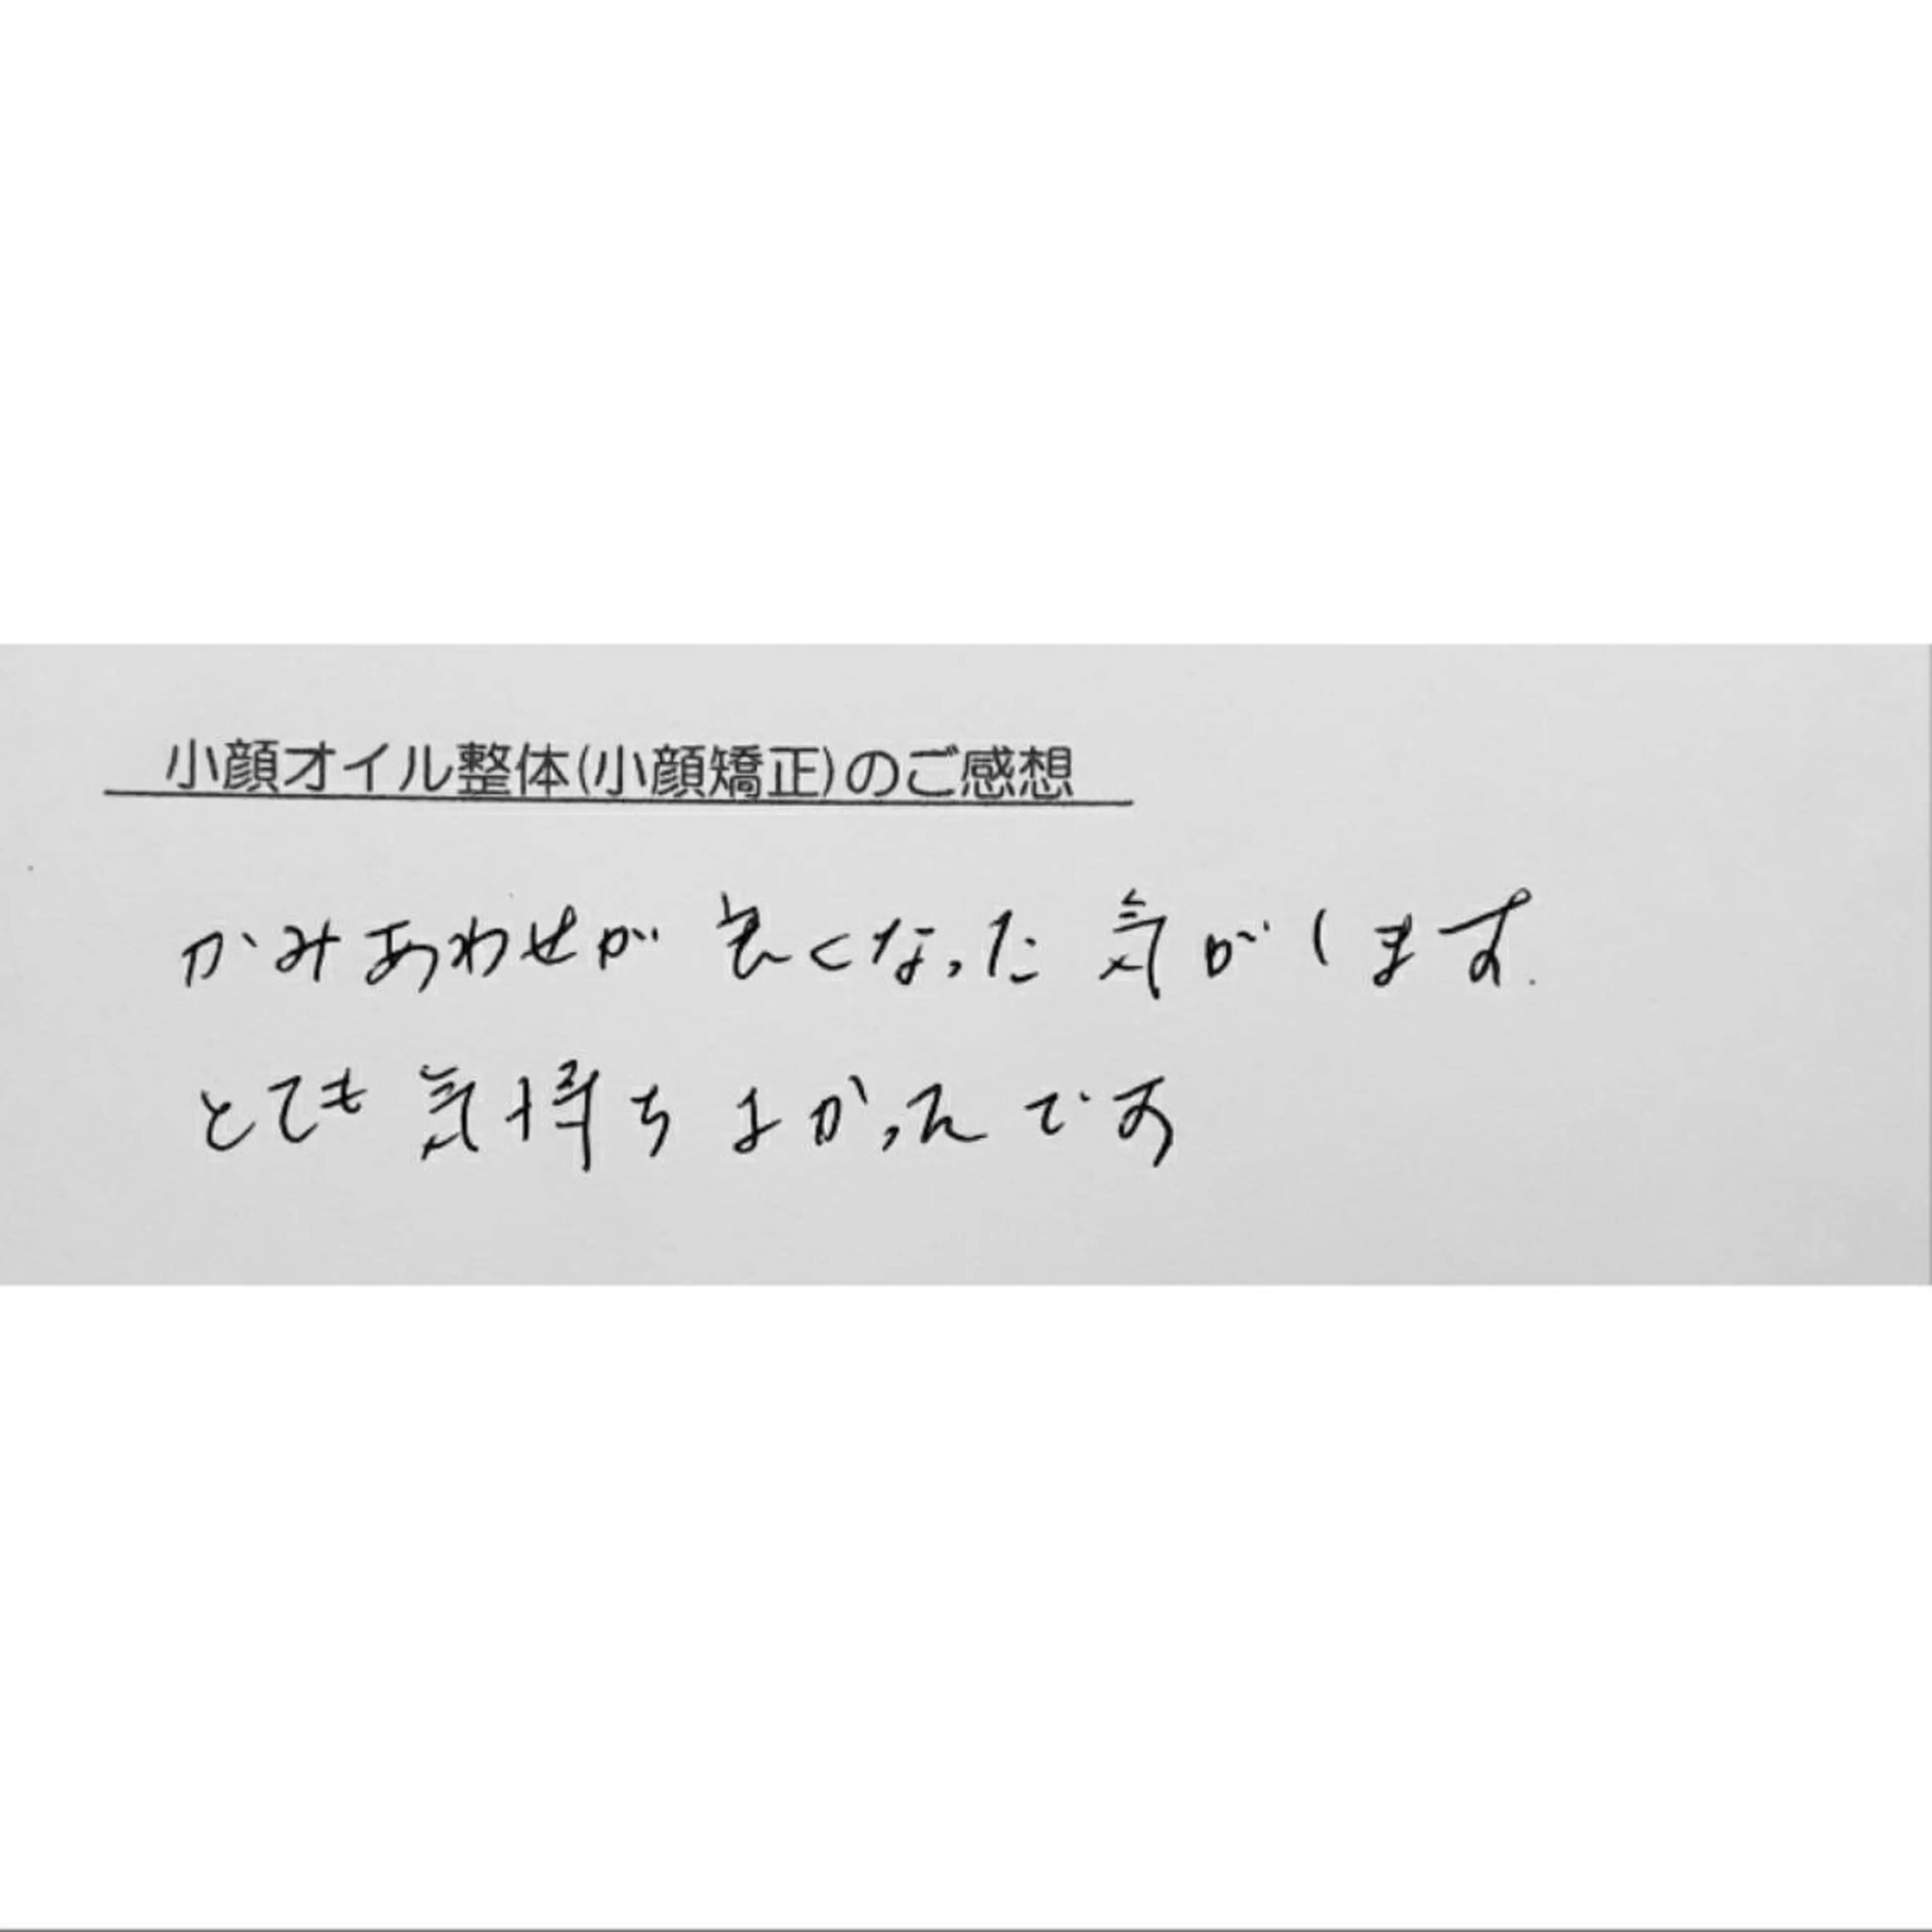 小顔オイル整体(小顔矯正)のご感想
かみあわせが良くなった気がします.
とても気持ちよかったです